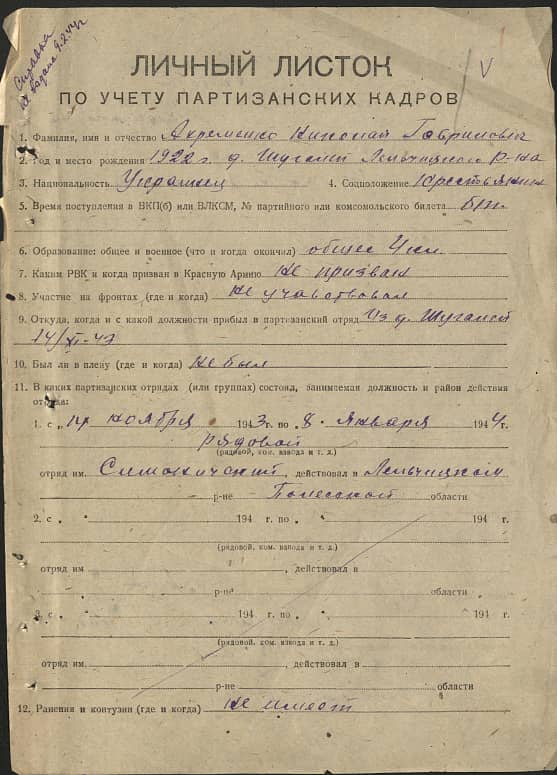 Справка
выдана 9.2.44г
V
ЛИЧНЫЙ ЛИСТОК
ПО УЧЕТУ ПАРТИЗАНСКИХ КАДРОВ
1. Фамилия, имя и отчество Ахременко Николай Гаврилович
2. Год и место рождения 1922 г. д. Шугалей Лельчицкого р-на
3. Национальность Украинец 4. Соцположение Крестьянин
5. Время поступления в ВКП(б) или ВЛКСМ, № партийного или комсомольского билета б/п.
6. Образование: общее и военное (что и когда окончил) общее 4 кл.
7. Каким РВК и когда призван в Красную Армию не призван
8. Участие на фронтах (где и когда) не участвовал
9. Откуда, когда и с какой должности прибыл в партизанский отряд Из д. Шугалей
14/XI-43
10. Был ли в плену (где и когда) не был
11. В каких партизанских отрядах (или группах) состоял, занимаемая должность и район действия
отряда:
1. с „14 ноября 1943 г. по „8 января 1944 г.
рядовой
(рядовой, ком. взвода и т. д.)
отряд им. Симоничский, действовал в Лельчицком
р-не Полесской области
2. с „ 194 г. по „ 194 г.
(рядовой, ком. взвода и т. д.)
отряд им , действовал в
р-не области
3. с „ 194 г. по „ 194 г.
(рядовой, ком. взвода и т. д.)
отряд им. , действовал в
р-не области
12. Ранения и контузии (где и когда) не имеет